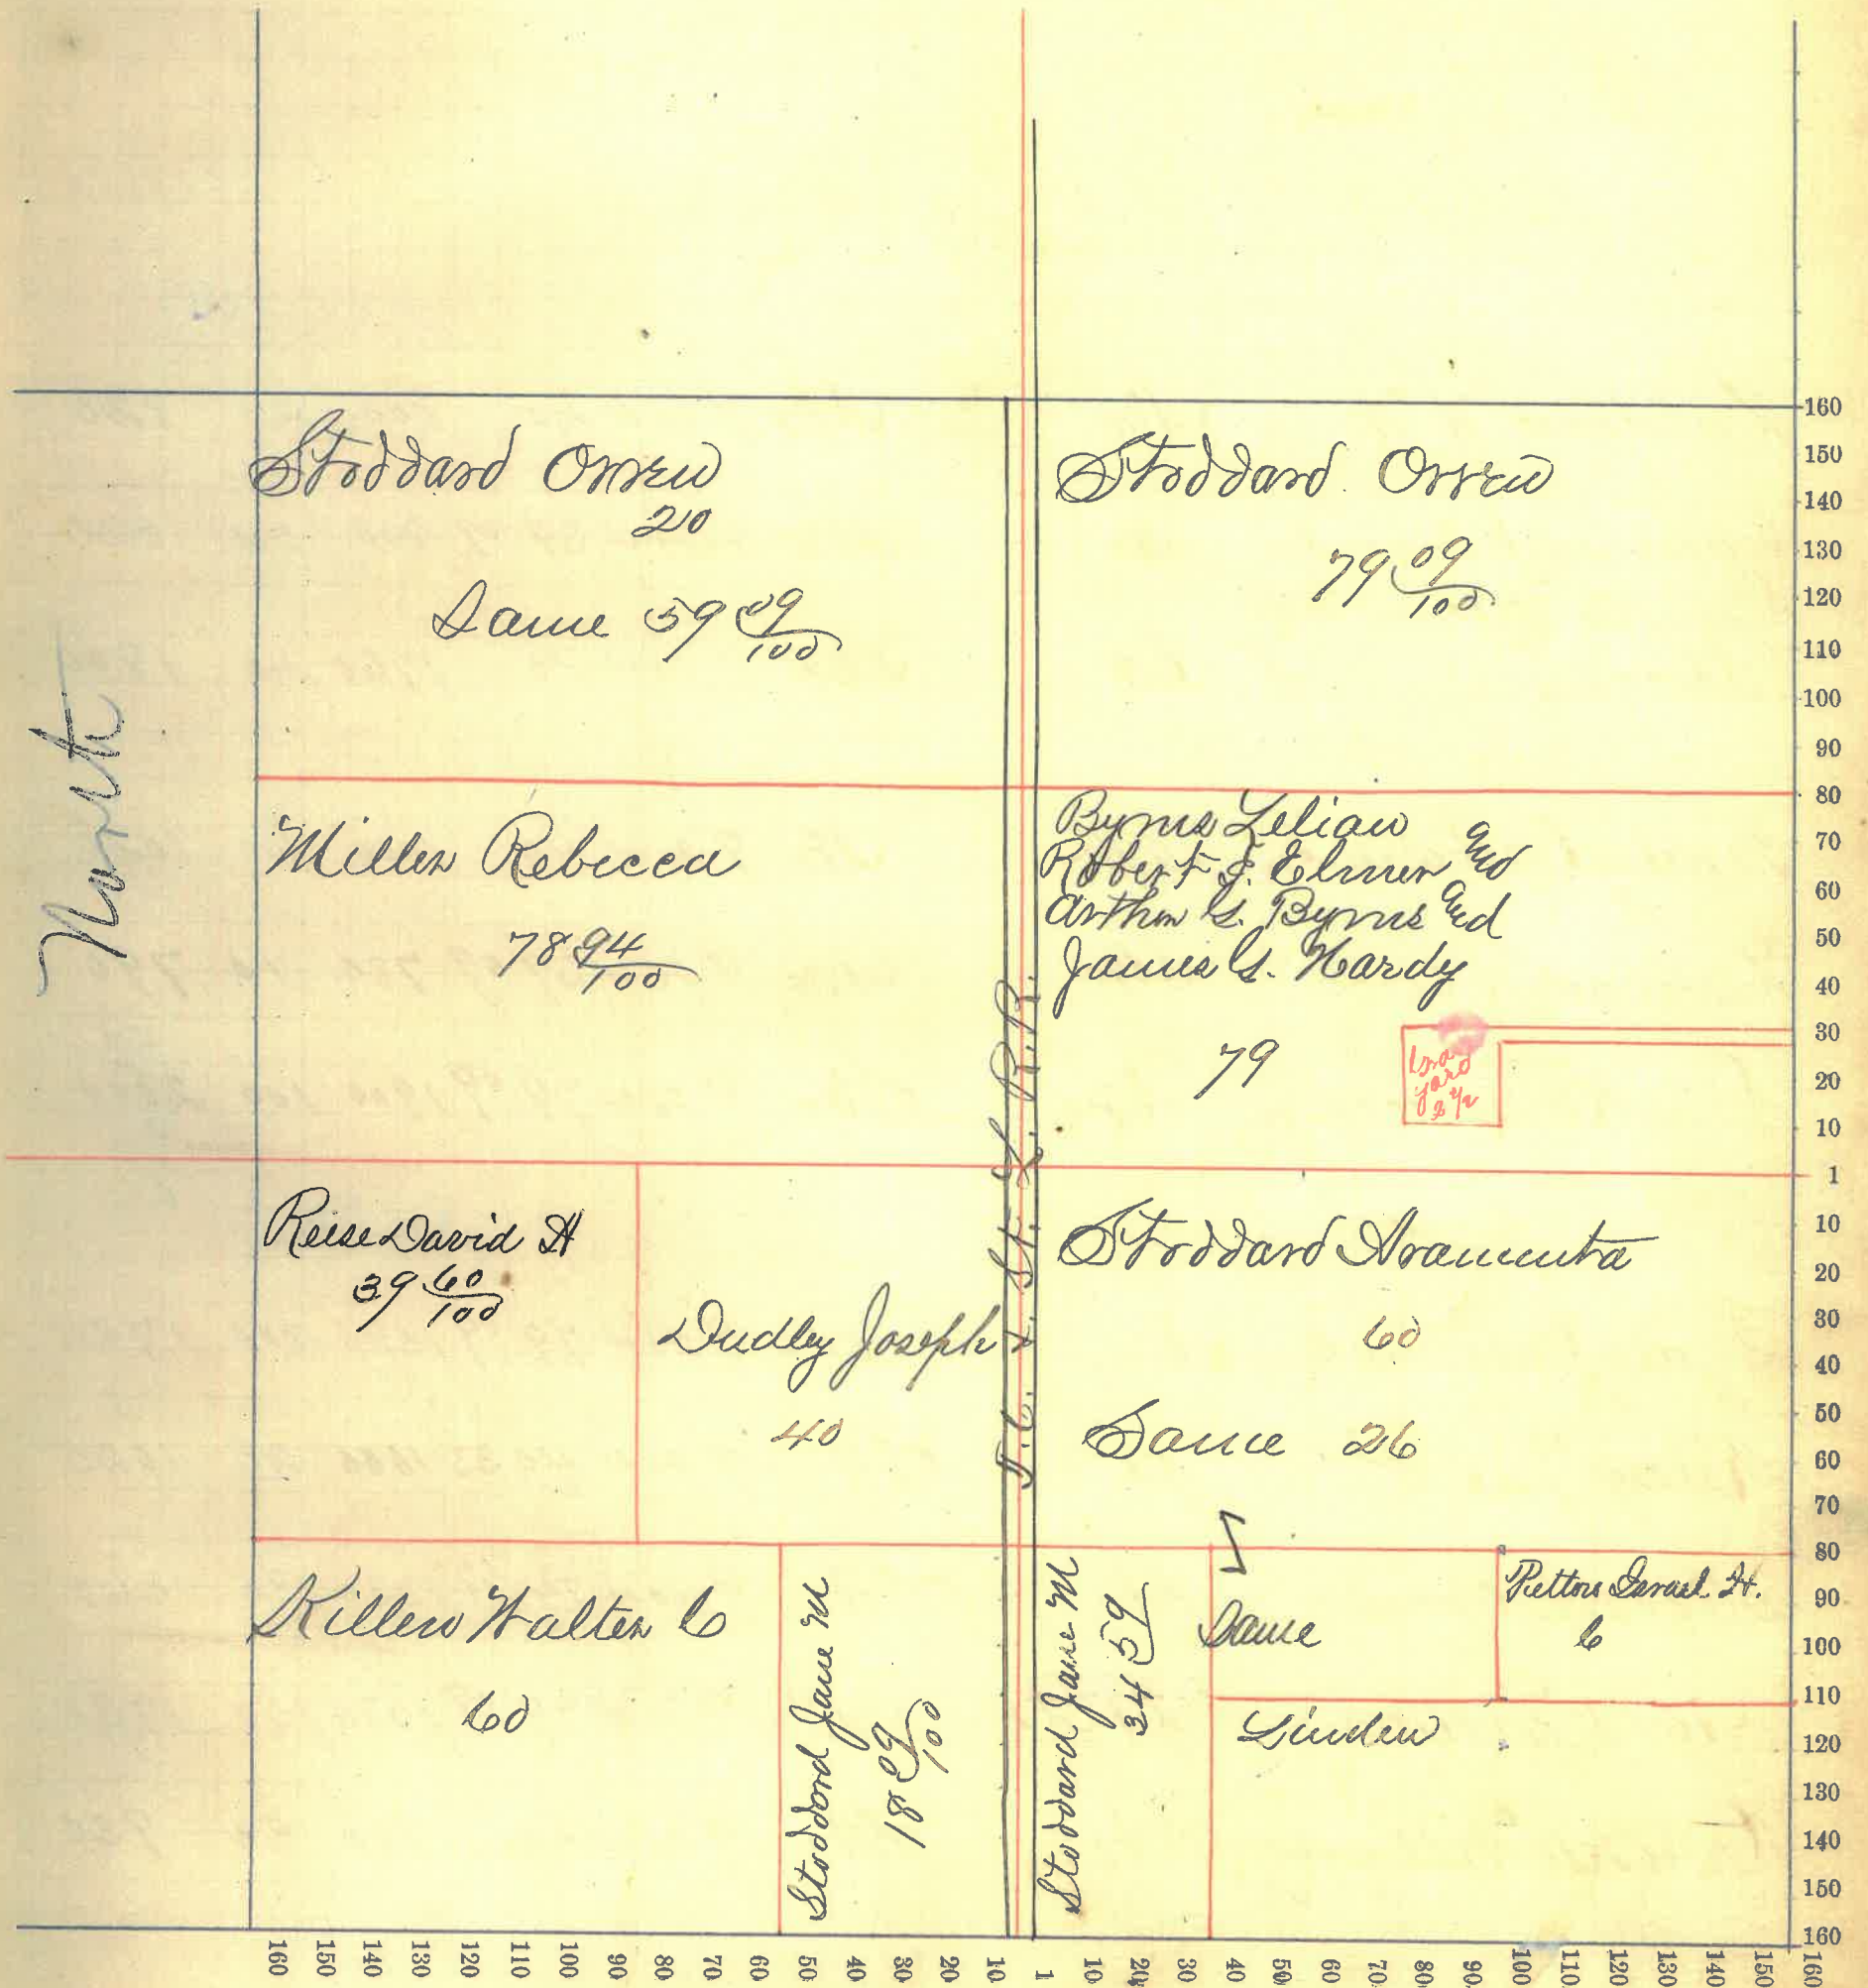 North
Stoddard Orren
20
Same 59 09/100
Stoddard Orren
79 09/100
Miller Rebecca
78 94/100
Byrns Lelian
Robert F. Elmer and
Arthur G. Byrns and
James G. Hardy
79
Gra
yard
2 1/2
T. C. & St. L. R. R.
Reese David H
39 60/100
Dudley Joseph
40
Stoddard Araminta
60
Same 26
Killen Walter C
60
Stoddard Jane M
18 29/100
Stoddard Jane M
34 59
Same
Israel H.
6
Linden
160
150
140
130
120
110
100
90
80
70
60
50
40
30
20
10
1
10
20
30
40
50
60
70
80
90
100
110
120
130
140
150
160
160 150 140 130 120 110 100 90 80 70 60 50 40 30 20 10 1 10 20 30 40 50 60 70 80 90 100 110 120 130 140 150 160